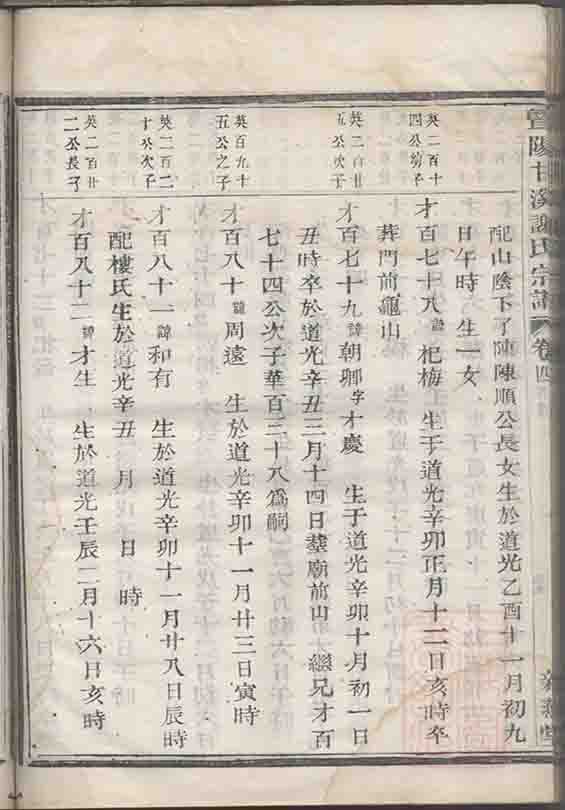 暨陽十溪謝氏宗譜 卷四
配山陰下了陳陳順公長女生於道光乙酉十一月初九
日午時 生一女
英二百十
四公幼子
才百七十八 諱 杞梅 生于道光辛卯正月十二日亥時卒
葬門前龜山
英二百廿
五公次子
才百七十九 諱 朝卿 字 才慶 生于道光辛卯十月初一日
丑時卒於道光辛丑三月十四日墓廟前山 繼兄才百
七十四公次子華百三十八為嗣
英百九十
五公之子
才百八十 諱 周遠 生於道光辛卯十一月廿三日寅時
英二百二
十公次子
才百八十一 諱 和有 生於道光辛卯十一月廿八日辰時
配樓氏生於道光辛丑 月 日 時
英二百廿
二公長子
才百八十二 諱 才生 生於道光壬辰二月十六日亥時